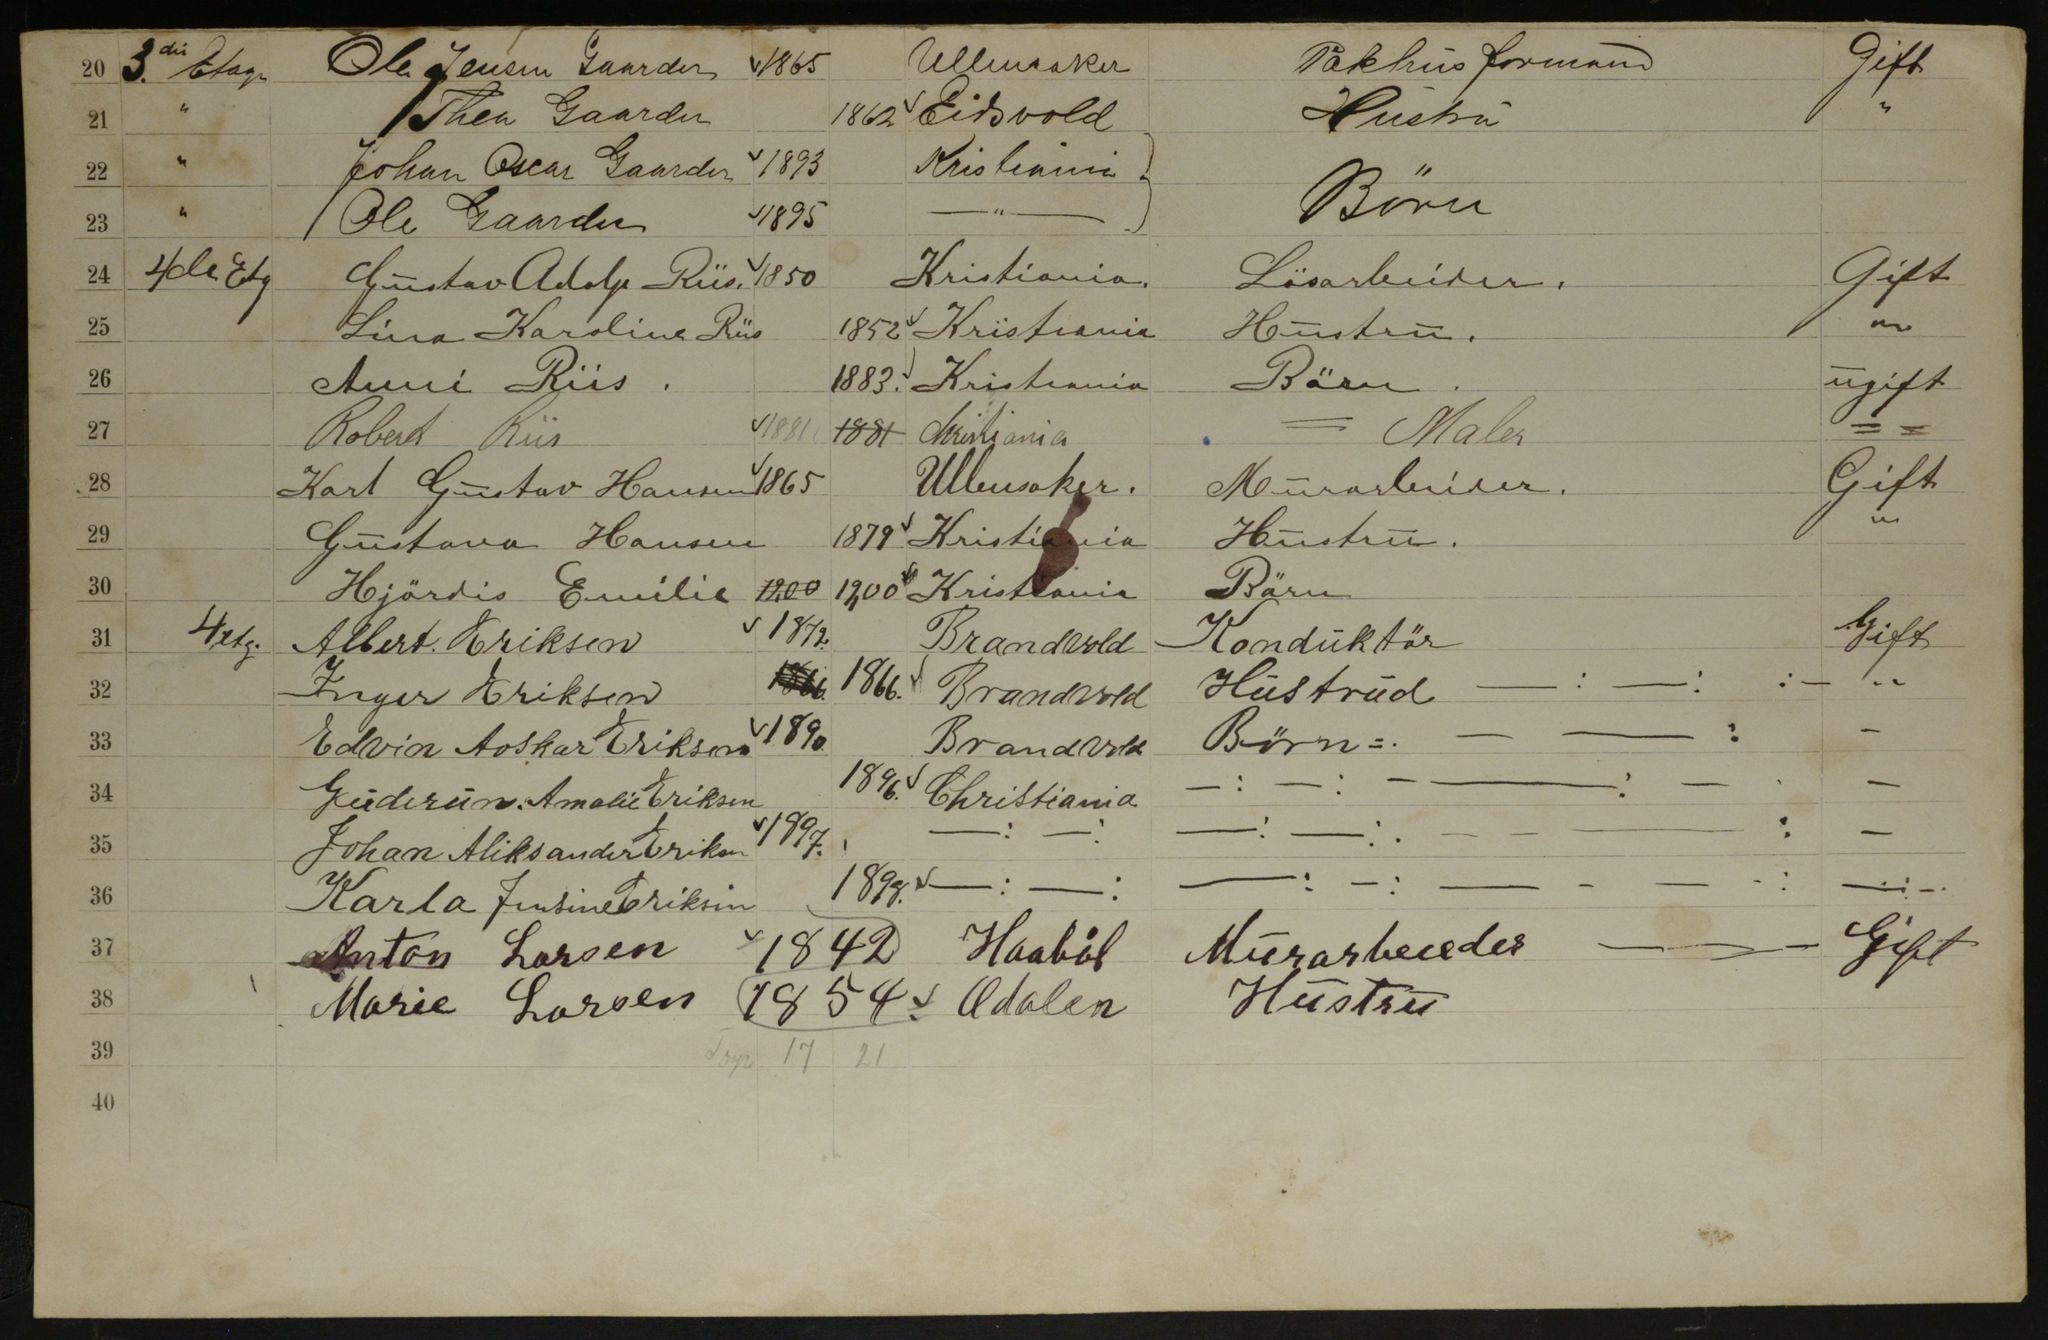 20 3.die Etage Ole Jensen Gaarder 1865 Ullensaker Pakhusformand Gift
21 " Thea Gaarder 1862 Eidsvold Hustru "
22 " Johan Oscar Gaarder 1893 Kristiania
23 " Ole Gaarder 1895 —"— Börn
24 4de Etg Gustav Adolf Riis. 1850 Kristiania. Lösarbeider. Gift
25 Lina Karoline Riis 1852 Kristiania Hustru. "
26 Anni Riis. 1883. Kristiania Börn. ugift
27 Robert Riis 1881 1881 Christiania = Maler = =
28 Karl Gustav Hansen 1865 Ullensaker. Murarbeider. Gift
29 Gustava Hansen 1879 Kristiania Hustru. "
30 Hjördis Emilie 1900 1900 Kristiania Börn
31 4 etg. Albert. Eriksen 1872. Brandvold Konduktör Gift
32 Inger Eriksen 1866. 1866. Brandvold Hustrud —:—: :— "
33 Edvin Aoskar Eriksen 1890. Brandvold Börn =. — —: —
34 Guderun. Amalie Eriksen 1896. Christiania —:—:— —:— —
35 Johan Aliksander Eriksen 1897. —:—: —:—:. — — —: —
36 Karla Jensine Eriksen 1898. —:—: —:—: — - — -: —:-.
37 Anton Larsen 1842 Haaböl Murarbeeder — Gift
38 Marie Larsen 1854. Odalen Hustru
39 17 21
40